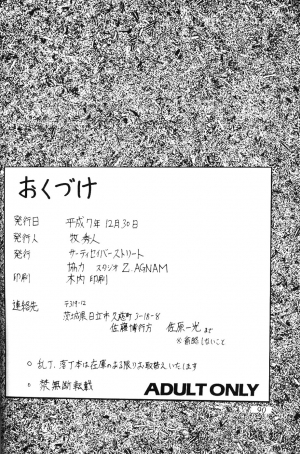 おくづけ
発行日 平成7年12月30日
発行人 牧秀人
発行 サーティセイバーストリート
協力 スタジオZ.AGNAM
印刷 木内印刷
連絡先 〒319-12
茨城県日立市久慈町3-18-8
佐藤博行方 佐原一光まで
○乱丁、落丁本は在庫のある限りお取替えいたします
○禁無断転載
ADULT ONLY